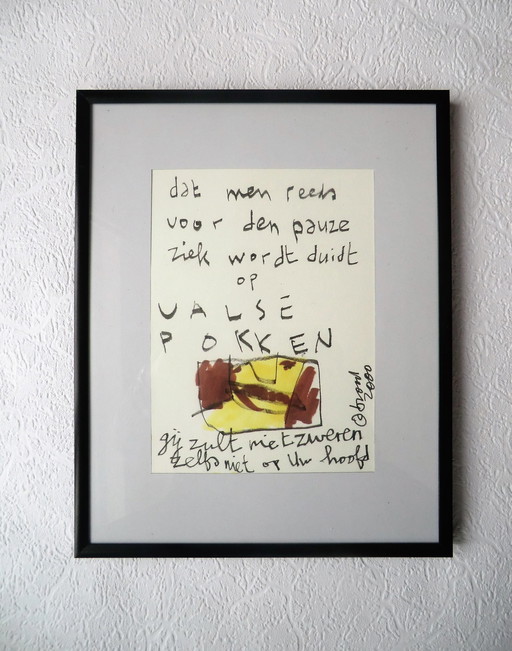 dat men reeds
voor den pauze
ziek wordt duidt
op
VALSE
POKKEN
gij zult niet zweren
zelfs niet op Uw hoofd
2000